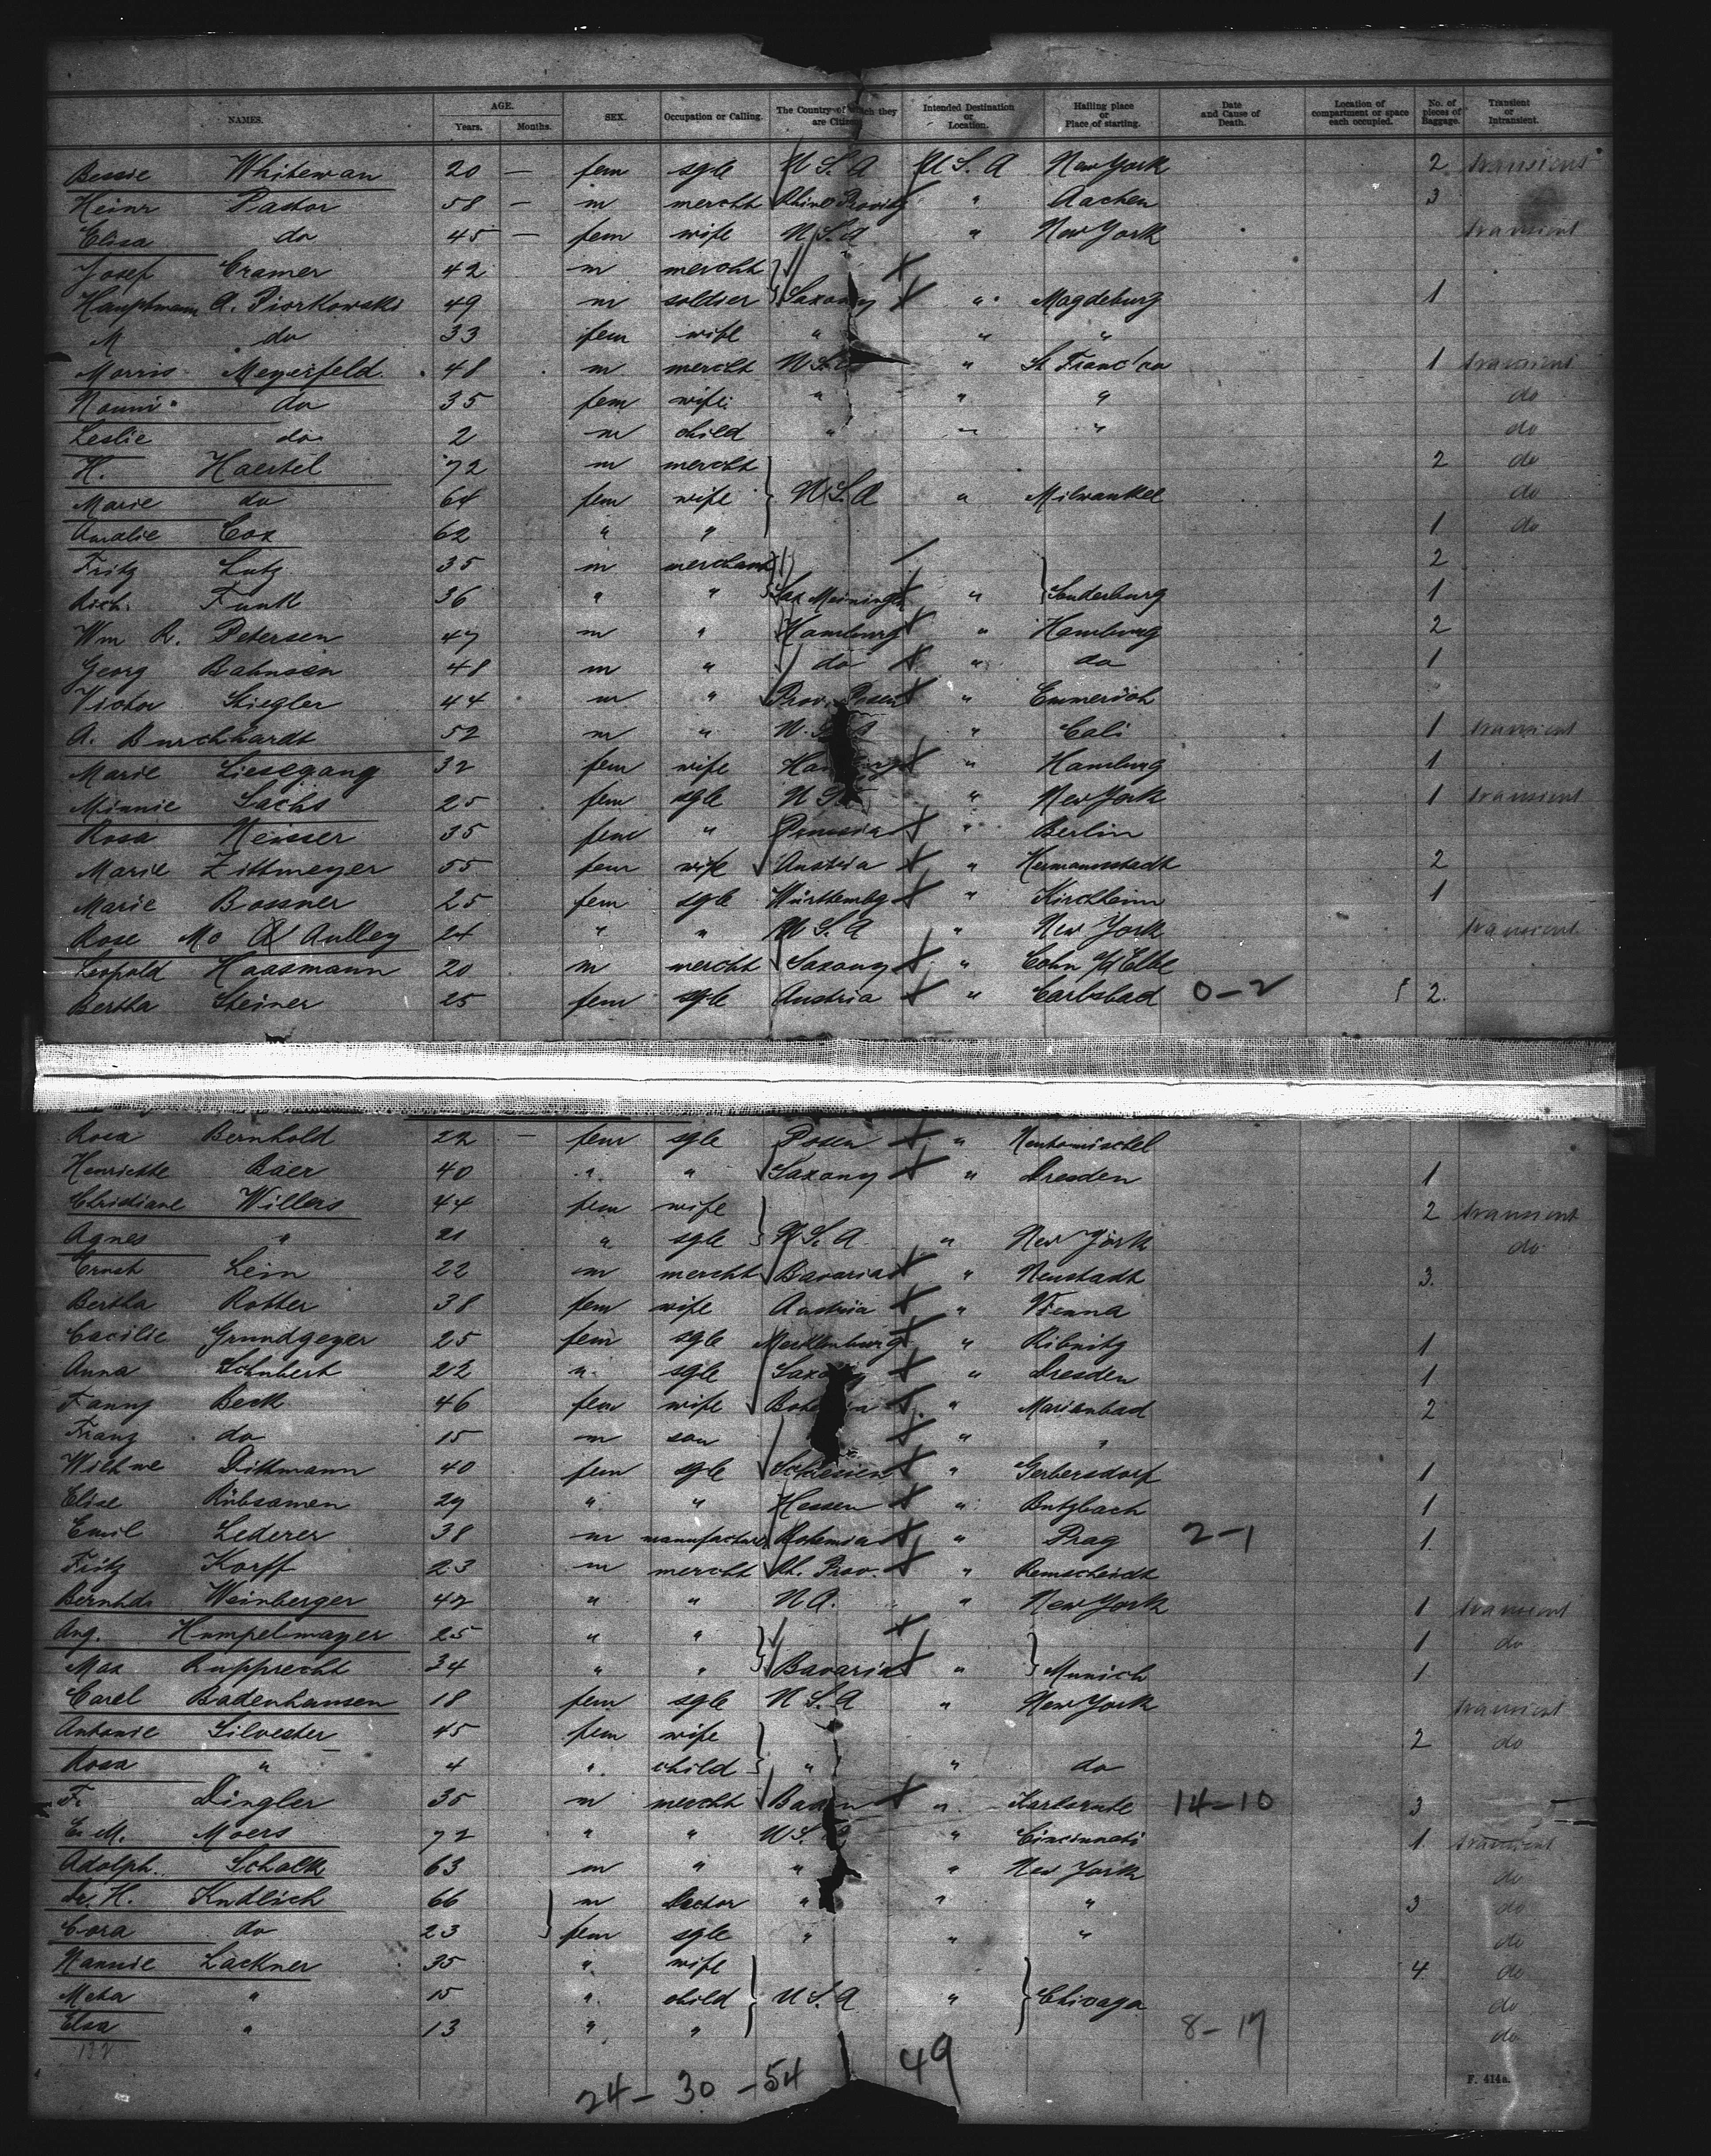 NAMES. AGE. Years. Months. SEX. Occupation or Calling. The Country of which they are Citizens. Intended Destination or Location. Hailing place or Place of starting. Date and Cause of Death. Location of compartment or space each occupied. No. of pieces of Baggage. Transient or Intransient.
Bessie Whiteman 20 — fem sgle U.S.A U.S.A New York 2 transient
Heinr Pastor 58 — m mercht Rhine Provitz " Aachen 3
Elisa do 45 — fem wife U.S.A " New York transient
Josef Cramer 42 m mercht
Hauptmann A. Piorkowski 49 m soldier Saxony " Magdeburg 1
M do 33 fem wife " " "
Morris Meyerfeld 48 m mercht U.S.A " St Franc'co 1 transient
Nanni do 35 fem wife " " " do
Leslie do 2 m child " " " do
H. Haertel 72 m mercht 2 do
Marie do 64 fem wife U.S.A " Milwaukee do
Amalie Cox 62 " " 1 do
Fritz Lutz 35 m merchant 2
Rich. Funk 36 " " Sax Meiningen " Sonderburg 1
Wm R. Petersen 47 m " Hamburg " Hamburg 2
Georg Bahnsen 48 m " do " do 1
Victor Stiegler 44 m " Prov. Posen " Emmerich
A. Burchhardt 52 m " U.S.A " Cali 1 transient
Marie Liesegang 32 fem wife Hamburg " Hamburg 1
Minnie Sachs 25 fem sgle U.S. " New York 1 transient
Rosa Neisser 35 fem " Prussia " Berlin
Marie Zittmeyer 55 fem wife Austria " Hermannstadt 2
Marie Bossner 25 fem sgle Württembg " Kirchheim 1
Rose Mc Aulley 24 " " U.S.A " New York transient
Leopold Haasmann 20 m mercht Saxony " Cohn a/d Elbe
Bertha Steiner 25 fem sgle Austria " Carlsbad 0-2 2
Rosa Bernhold 22 — fem sgle Posen " Neutomischel
Henriette Baer 40 " " Saxony " Dresden 1
Christiane Willers 44 fem wife 2 transient
Agnes " 21 " sgle U.S.A " New York do
Ernst Lein 22 m mercht Bavaria " Neustadt 3
Bertha Rotter 38 fem wife Austria " Vienna
Cacilie Grundgeyer 25 fem sgle Mecklenburg " Ribnitz 1
Anna Schubert 22 " sgle Saxony " Dresden 1
Fanny Beck 46 fem wife Bohemia " Marienbad 2
Franz do 15 m son " "
Wilhme Dittmann 40 fem sgle Schlesien " Gerbersdorf 1
Elise Rübsamen 29 " " Hessen " Butzbach 1
Emil Lederer 38 m manufacturer Bohemia " Prag 2-1 1
Fritz Korff 23 m mercht Rh. Prov. " Remscheidt
Bernhd. Weinberger 42 " " U A. " New York 1 transient
Aug. Humpelmayer 25 " " 1 do
Max Rupprecht 34 " " Bavaria " Munich 1
Carel Badenhausen 18 fem sgle U.S.A " New York transient
Antonie Silvester 45 fem wife 2 do
Rosa " 4 " child " " do
F. Dingler 35 m mercht Baden " Karlsruhe 14-10 3
E. M. Moers 72 " " U.S. " Cincinnati 1 transient
Adolph. Schalk 63 m " " " New York do
Dr. H. Kudlich 66 m Doctor " " " 3 do
Cora do 23 fem sgle " " " do
Nannie Lackner 35 " wife 4 do
Meta " 15 " child U.S.A " Chicago do
Elsa " 13 " " 8-17 do
132
24 - 30 - 54 49
F. 414a.